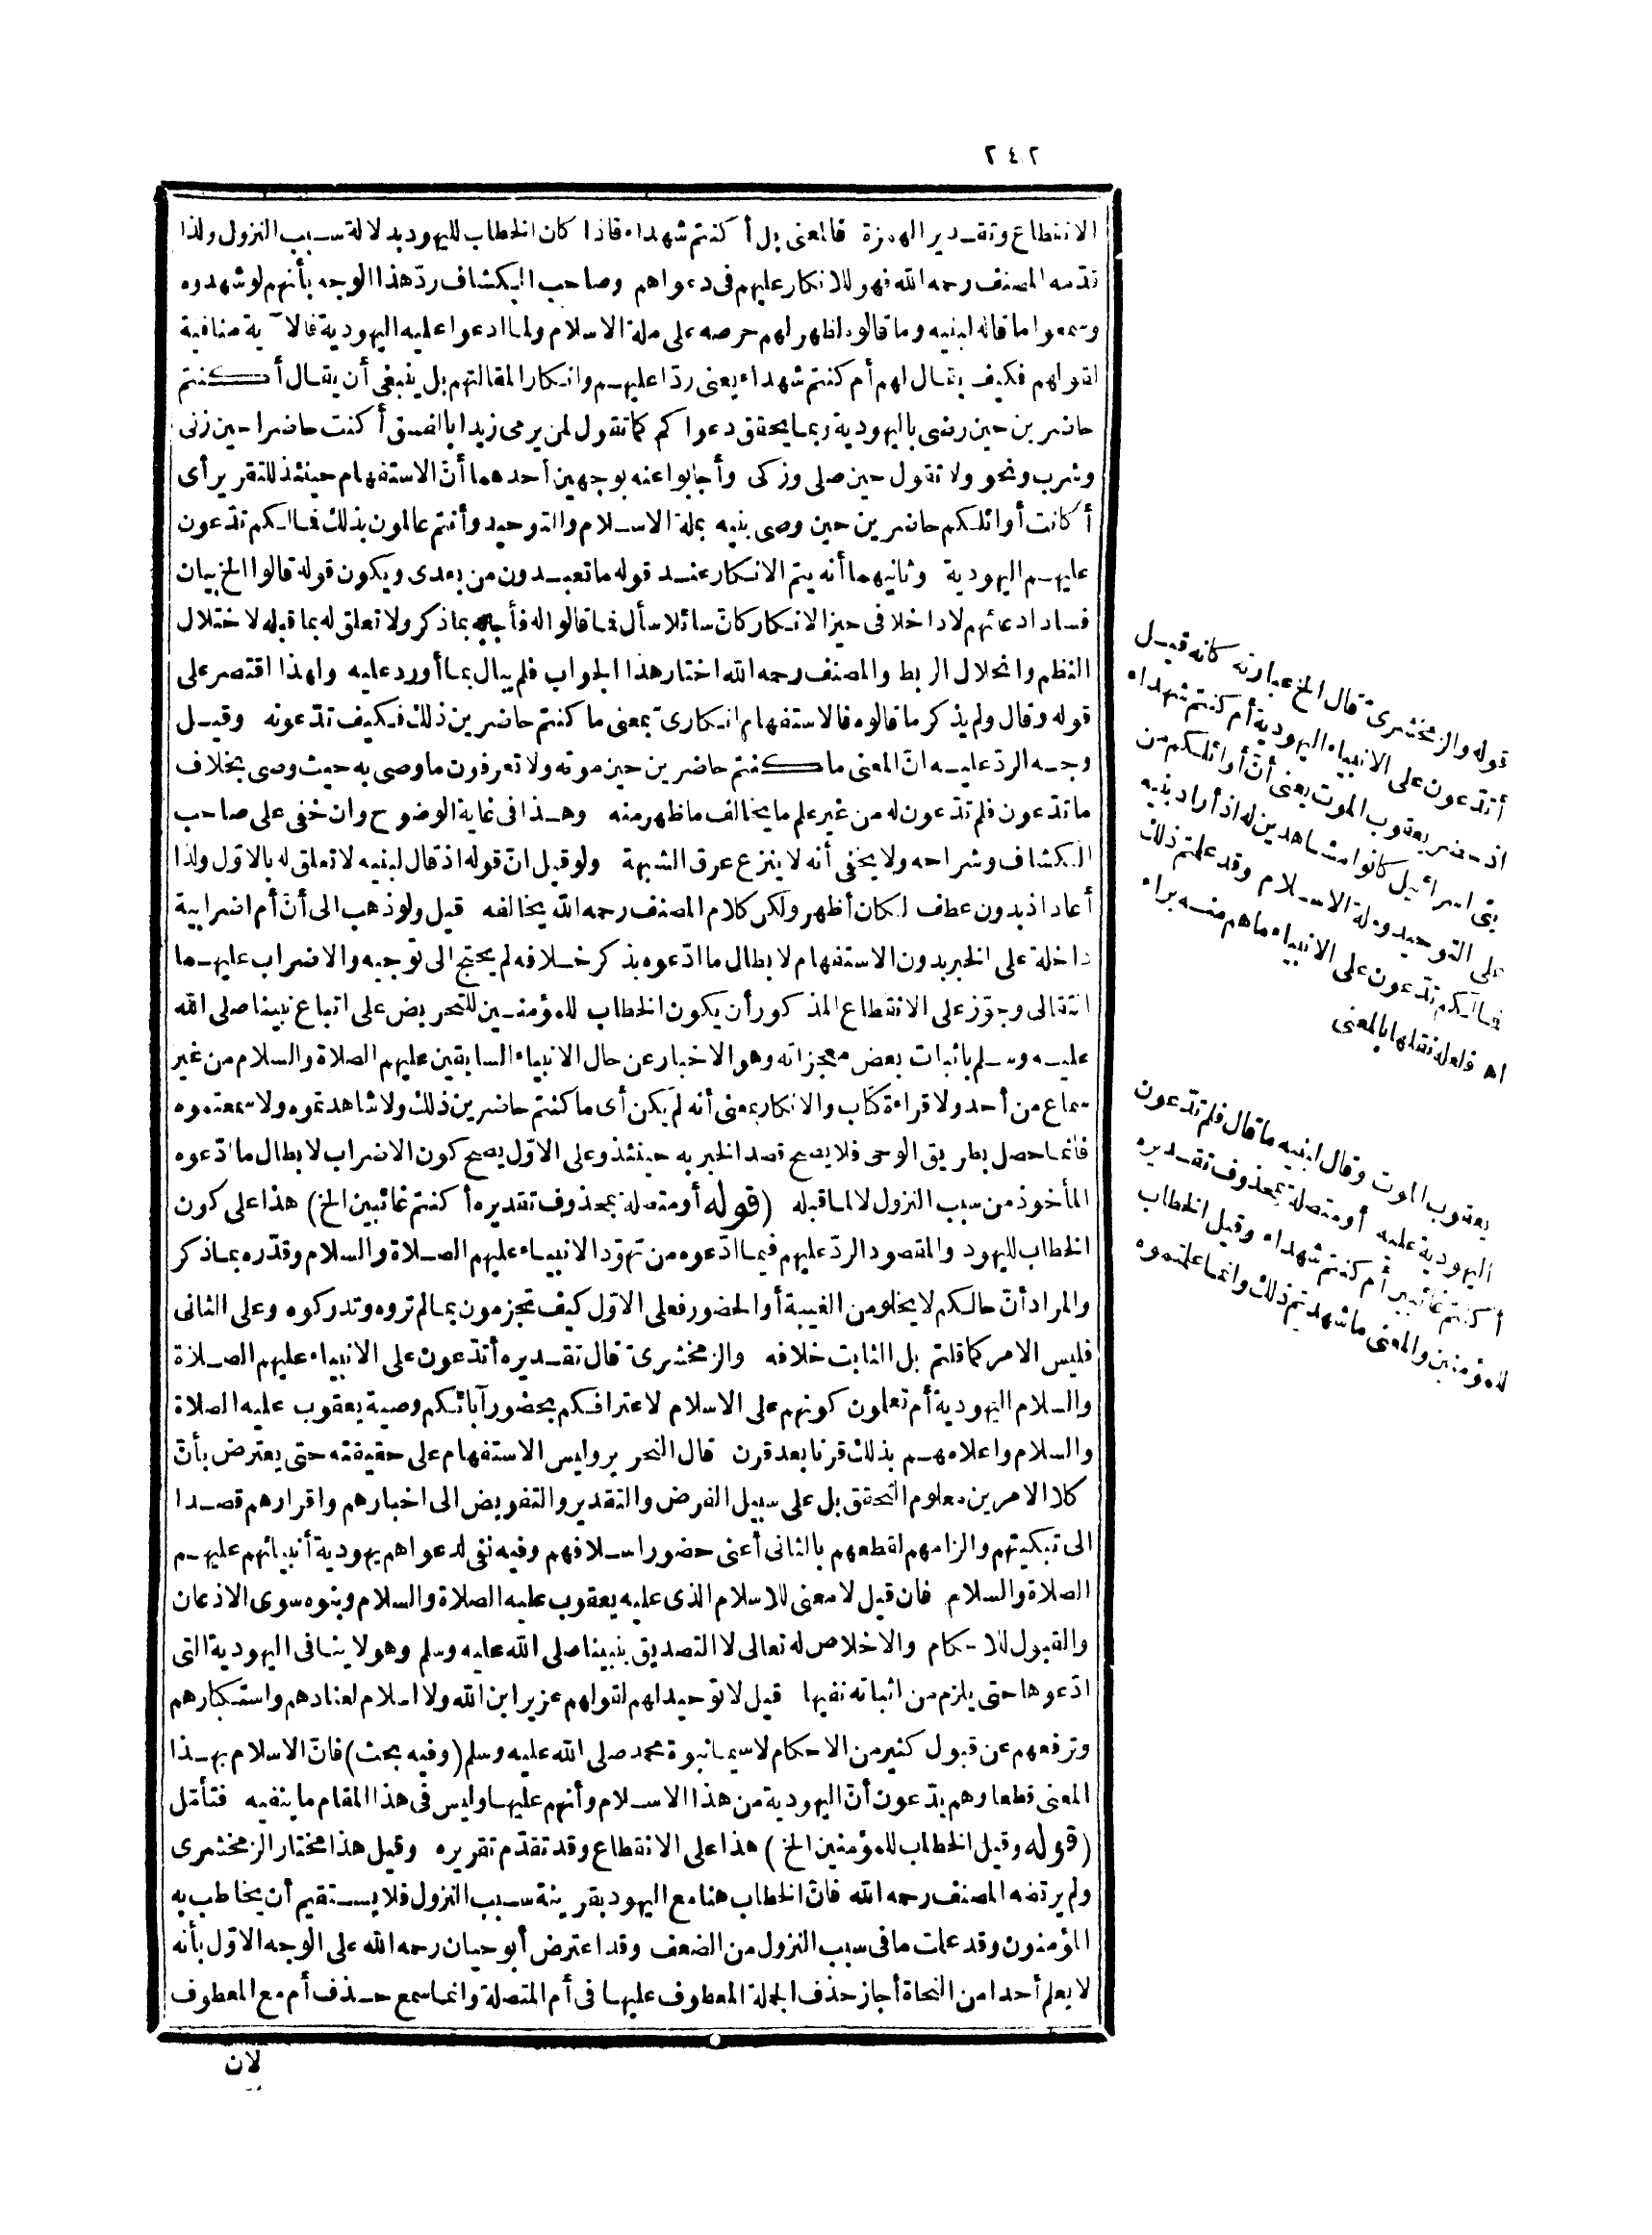 ٢٤٢
الانقطاع وتقدير الهمزة فالمعنى بل أكنتم شهداء فاذا كان الخطاب لليهود بدلالة سبب النزول ولذا
قدّمه المصنف رحمه الله فهو للانكار عليهم فى دعواهم وصاحب الكشاف ردّ هذا الوجه بأنهم لو شهدوه
وسمعوا ما قاله لبنيه وما قالوه لظهر لهم حرصه على ملة الاسلام ولما ادعوا عليه اليهودية فالآية منافية
لقولهم فكيف يقال لهم أم كنتم شهداء يعنى ردّا عليهم وانكارا لمقالتهم بل ينبغى أن يقال أكنتم
حاضرين حين رضى باليهودية وبما يحقق دعواكم كما تقول لمن يرمى زيدا بالفسق أكنت حاضرا حين زنى
وشرب ونحو ولا تقول حين صلى وزكى وأجابوا عنه بوجهين أحدهما أنّ الاستفهام حينئذ للتقرير أى
أكانت أوائلكم حاضرين حين وصى بنيه بملة الاسلام والتوحيد وأنتم عالمون بذلك فمالكم تدّعون
عليهم اليهودية وثانيهما أنه يتم الانكار عند قوله ما تعبدون من بعدى ويكون قوله قالوا الخ بيان
فساد ادعائهم لا داخلا فى حيز الانكار كانّ سائلا سأل فما قالوا له فأجابه بما ذكر ولا تعلق له بما قبله لاختلال
النظم وانحلال الربط والمصنف رحمه الله اختار هذا الجواب فلم يبال بما أورد عليه ولهذا اقتصر على
قوله وقال ولم يذكر ما قالوه فالاستفهام انكارىّ بمعنى ما كنتم حاضرين ذلك فكيف تدّعونه وقيل
وجه الردّ عليه انّ المعنى ما كنتم حاضرين حين موته ولا تعرفون ما وصى به حيث وصى بخلاف
ما تدّعون فلم تدّعون له من غير علم ما يخالف ما ظهر منه وهذا فى غاية الوضوح وان خفى على صاحب
الكشاف وشراحه ولا يخفى أنه لا ينزع عرق الشبهة ولو قيل انّ قوله اذ قال لبنيه لا تعلق له بالاوّل ولذا
أعاد اذ بدون عطف لكان أظهر ولكن كلام المصنف رحمه الله يخالفه قيل ولو ذهب الى أنّ أم اضرابية
داخلة على الخبر بدون الاستفهام لابطال ما ادّعوه بذكر خلافه لم يحتج الى توجيه والاضراب عليهما
انتقالى وجوّز على الانقطاع المذكور أن يكون الخطاب للمؤمنين للتحريض على اتباع نبينا صلى الله
عليه وسلم باثبات بعض معجزاته وهو الاخبار عن حال الانبياء السابقين عليهم الصلاة والسلام من غير
سماع من أحد ولا قراءة كتاب والانكار بمعنى أنه لم يكن أى ما كنتم حاضرين ذلك ولا شاهدتموه ولا سمعتموه
فانما حصل بطريق الوحى فلا يصح قصد الخبر به حينئذ وعلى الاوّل يصح كون الاضراب لابطال ما ادّعوه
المأخوذ من سبب النزول لا لما قبله (قوله أو متصلة بمحذوف تقديره أكنتم غائبين الخ) هذا على كون
الخطاب لليهود والمقصود الردّ عليهم فيما ادّعوه من تهوّد الانبياء عليهم الصلاة والسلام وقدّره بما ذكر
والمراد أنّ حالكم لا يخلو من الغيبة أو الحضور فعلى الاوّل كيف تجزمون بما لم تروه وتدركوه وعلى الثانى
فليس الامر كما قلتم بل الثابت خلافه والزمخشرىّ قال تقديره أتدّعون على الانبياء عليهم الصلاة
والسلام اليهودية أم تعلمون كونهم على الاسلام لاعترافكم بحضور آبائكم وصية يعقوب عليه الصلاة
والسلام واعلامهم بذلك قرنا بعد قرن قال النحرير وليس الاستفهام على حقيقته حتى يعترض بأنّ
كلا الامرين معلوم التحقق بل على سبيل الفرض والتقدير والتفويض الى اخبارهم واقرارهم قصدا
الى تبكيتهم والزامهم لقطعهم بالثانى أعنى حضور اسلافهم وفيه نفى لدعواهم يهودية أنبيائهم عليهم
الصلاة والسلام فان قيل لا معنى للاسلام الذى عليه يعقوب عليه الصلاة والسلام وبنوه سوى الاذعان
والقبول للاحكام والاخلاص له تعالى لا التصديق بنبينا صلى الله عليه وسلم وهو لا ينافى اليهودية التى
ادّعوها حتى يلزم من اثباته نفيها قيل لا توحيد لهم لقولهم عزير ابن الله ولا اسلام لعنادهم واستكبارهم
وترفعهم عن قبول كثير من الاحكام لاسيما نبوة محمد صلى الله عليه وسلم (وفيه بحث) فانّ الاسلام بهذا
المعنى قطعا وهم يدّعون أنّ اليهودية من هذا الاسلام وأنهم عليها وليس فى هذا المقام ما ينفيه فتأمّل
(قوله وقيل الخطاب للمؤمنين الخ) هذا على الانقطاع وقد تقدّم تقريره وقيل هذا مختار الزمخشرى
ولم يرتضه المصنف رحمه الله فانّ الخطاب هنا مع اليهود بقرينة سبب النزول فلا يستقيم أن يخاطب به
المؤمنون وقد علمت ما فى سبب النزول من الضعف وقد اعترض أبو حيان رحمه الله على الوجه الاوّل بأنه
لا يعلم أحدا من النحاة أجاز حذف الجملة المعطوف عليها فى أم المتصلة وانما سمع حذف أم مع المعطوف
لان
قوله والزمخشرىّ قال الخ عبارته كانه قيل
أتدّعون على الانبياء اليهودية أم كنتم شهداء
اذ حضر يعقوب الموت يعنى أنّ أوائلكم من
بنى اسرائيل كانوا مشاهدين له اذ أراد بنيه
على التوحيد وملة الاسلام وقد علمتم ذلك
فمالكم تدّعون على الانبياء ما هم منه براء
اه فلعله نقلها بالمعنى
يعقوب الموت وقال لبنيه ما قال فلم تدّعون
اليهودية عليه أو متصلة بمحذوف تقديره
أكنتم غائبين أم كنتم شهداء وقيل الخطاب
للمؤمنين والمعنى ما شهدتم ذلك وانما علمتموه